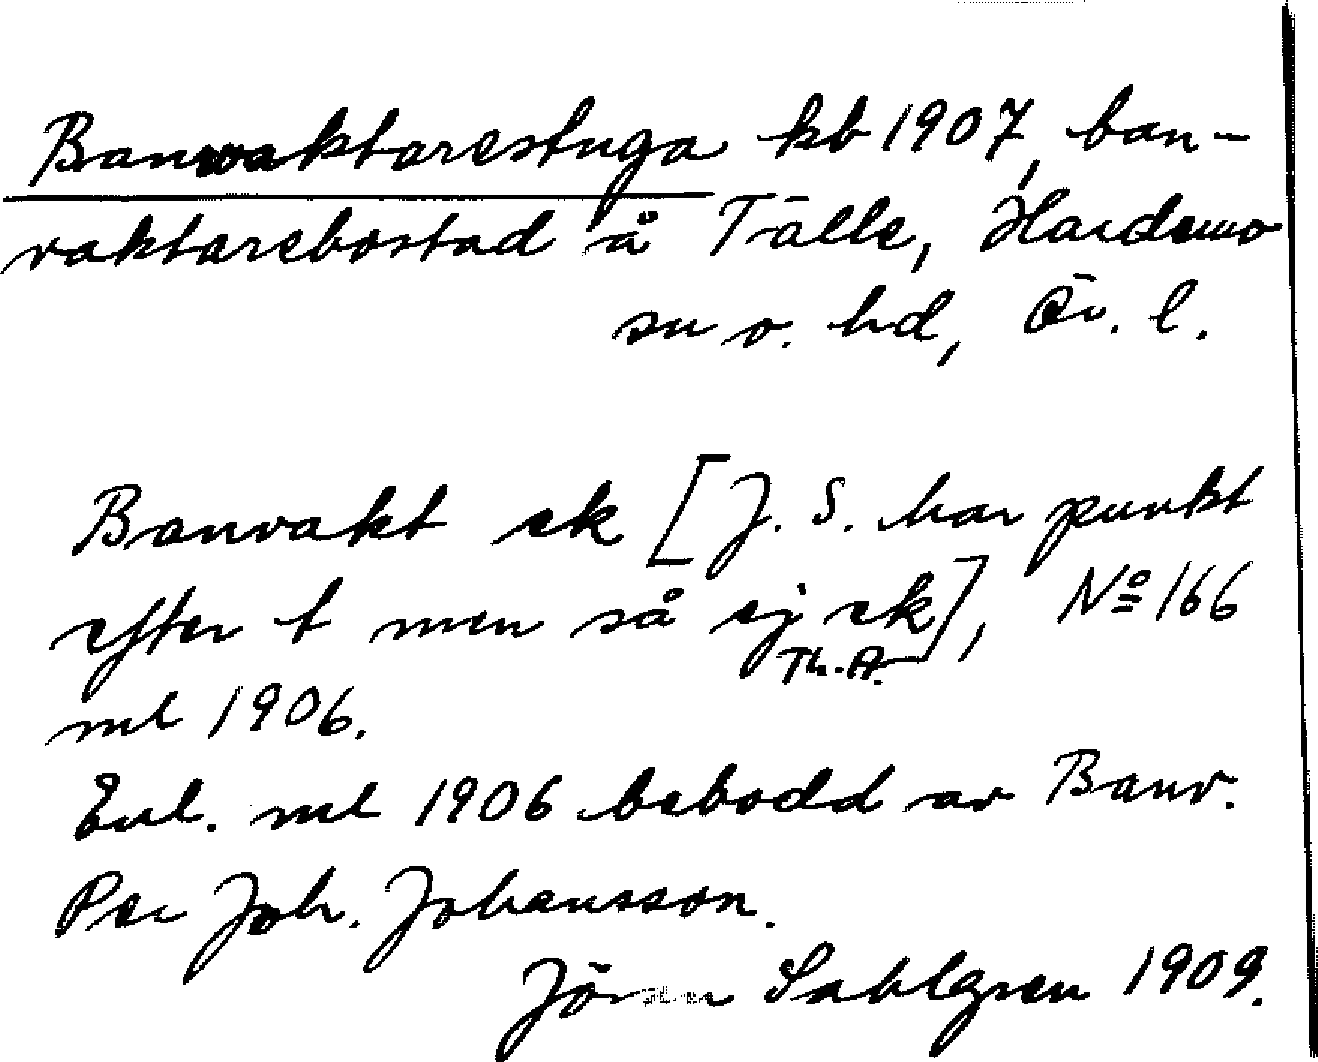 Banvaktarestuga kb 1907, ban-
vaktarebostad å Tälle, Hardemo
sn o. hd, Ör. l.
Banvakt ek [J. S. har punkt
efter t men så ej ek], No 166
Th. A.
ml 1906.
Enl. ml 1906 bebodd av Banv.
Per Joh. Johansson.
Jöran Sahlgren 1909.